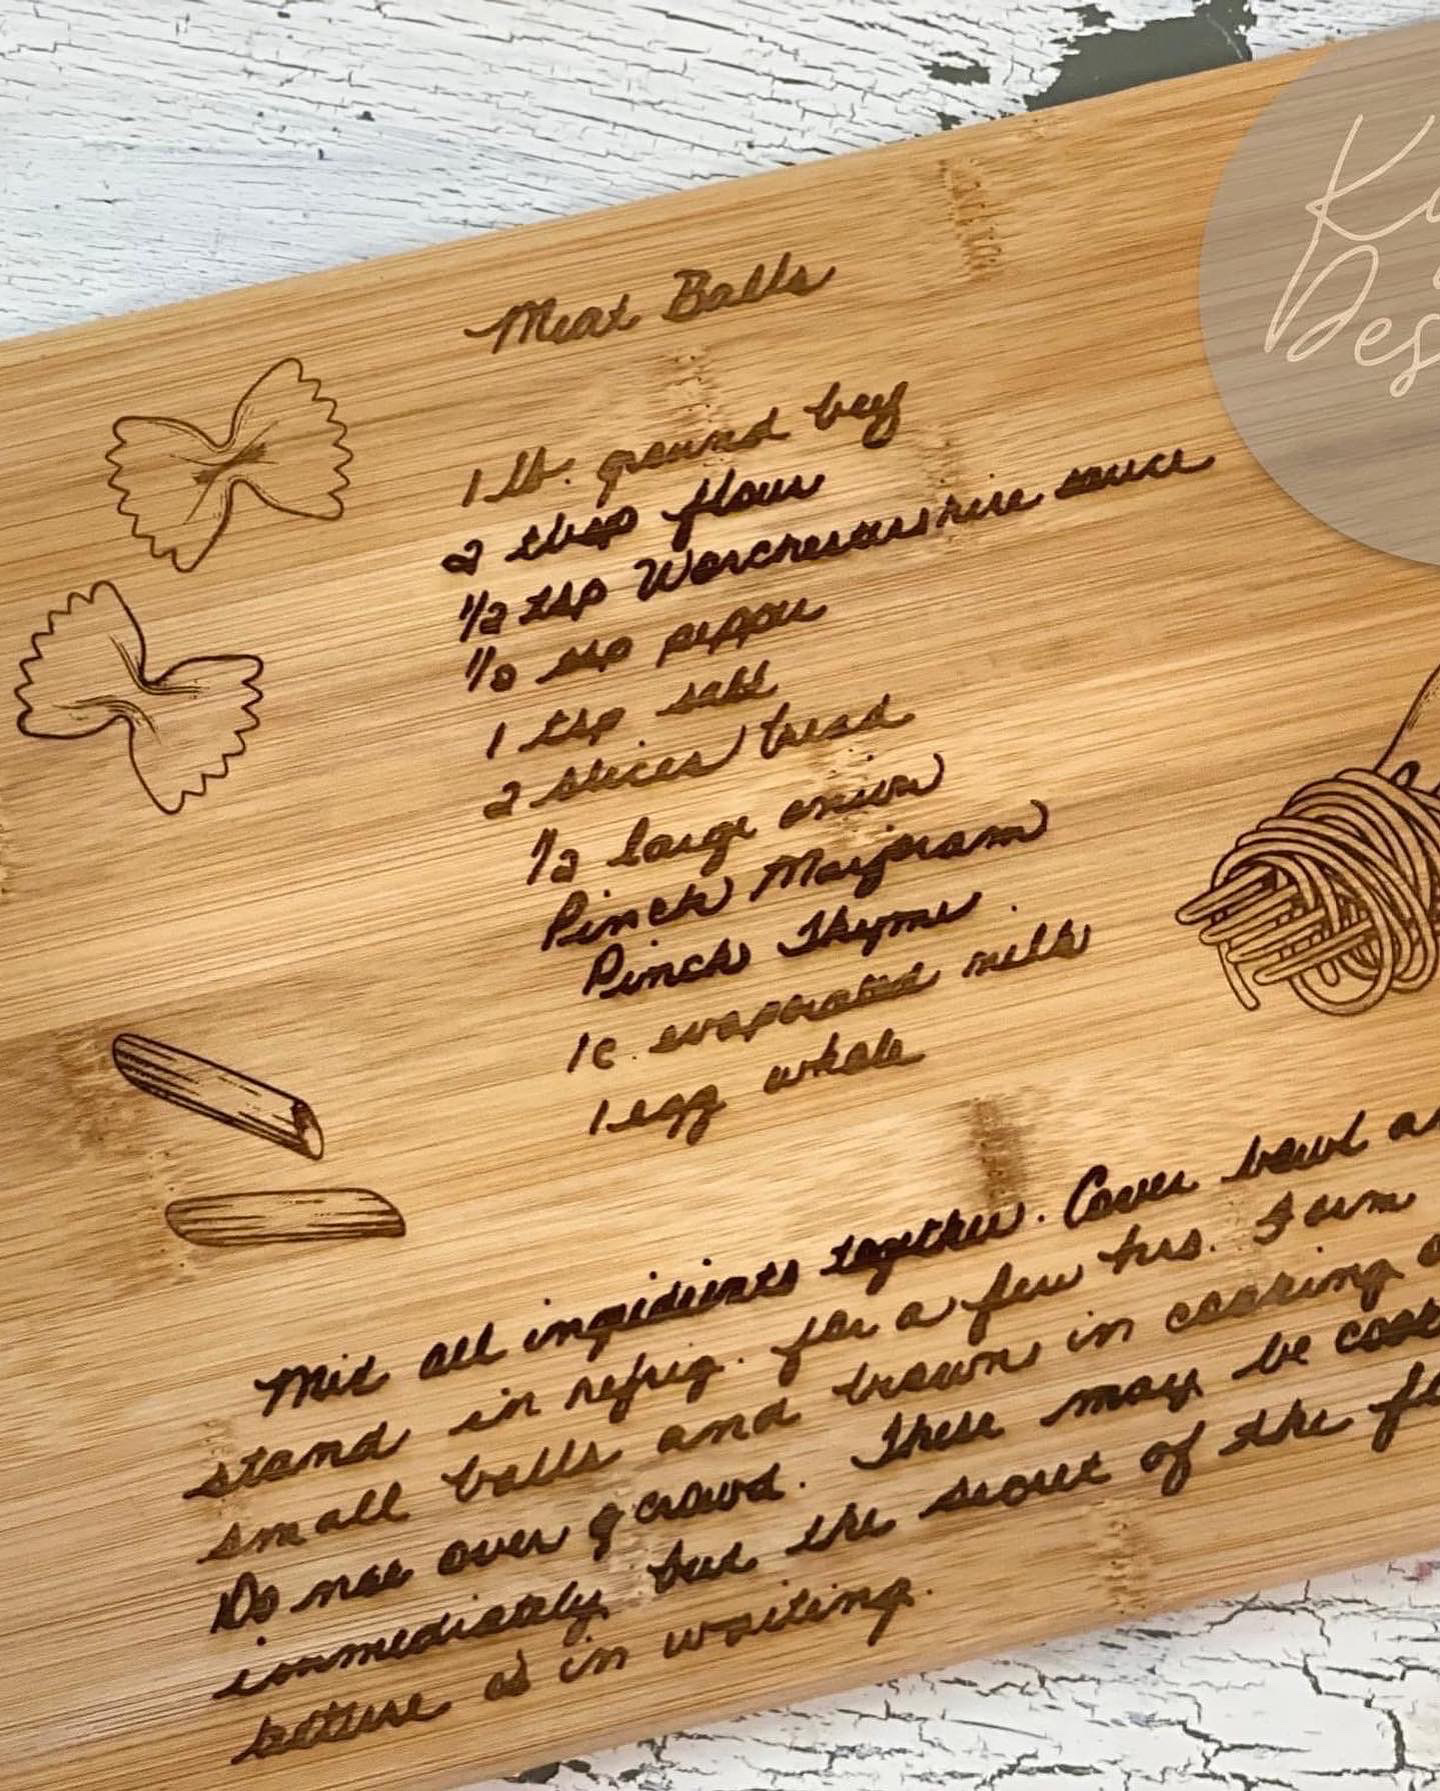 Meat Balls
1 lb. ground beef
2 tbsp flour
1/2 tsp Worchestershire sauce
1/8 tsp pepper
1 tsp salt
2 slices bread
1/2 large onion
Pinch Marjoram
Pinch Thyme
1 c. evaporated milk
1 egg whole
Mix all ingredients together. Cover bowl
stand in refrig. for a few hrs. Form
small balls and brown in cooking
Do not over crowd. These may be
immediately but the secret of the
is in waiting.
Des